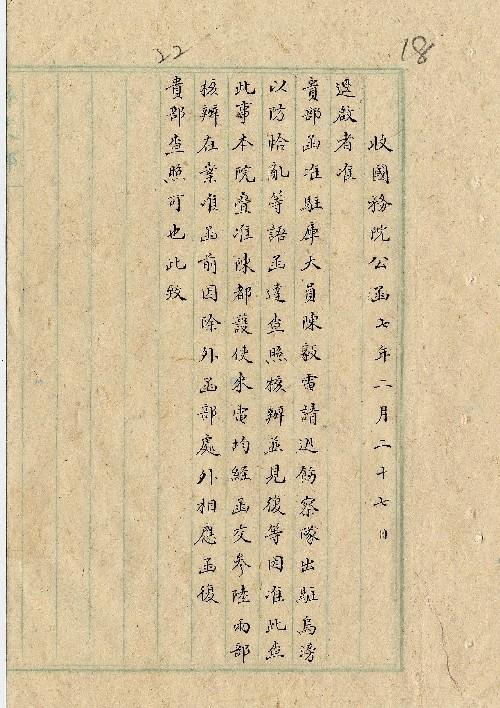 18
22
收國務院公函七年二月二十七日
逕啟者准
貴部函准駐庫大員陳毅電請迅飭察隊出駐烏滂
以防恰亂等語函達查照核辦並見復等因准此查
此事本院疊准陳都護使來電均經函交參陸兩部
核辦在案准函前因除外函部處外相應函復
貴部查照可也此致